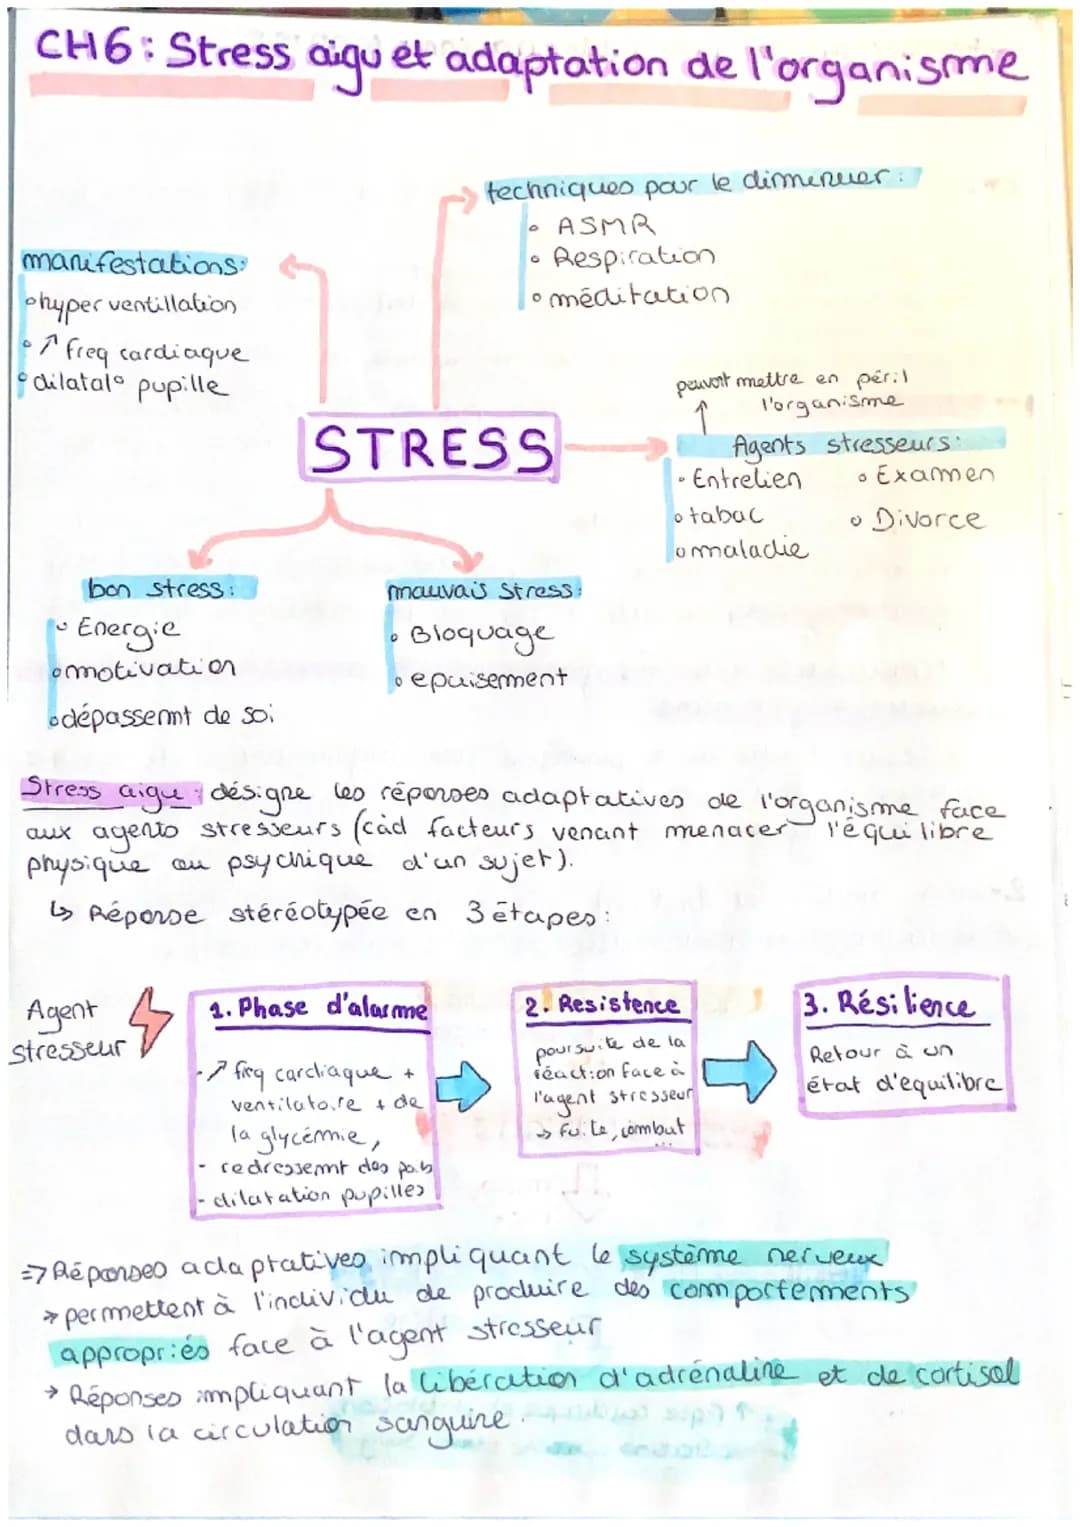 CH6: Stress aigu et adaptation de l'organisme
techniques pour le diminuer:
• ASMR
• Respiration
• méditation
manifestations:
• hyper ventillation
• ↗ freq cardiaque
• dilatat° pupille
STRESS
peuvent mettre en péril
l'organisme
Agents stresseurs:
• Entretien • Examen
• tabac • Divorce
• maladie
bon stress:
• Energie
• motivation
• dépassemnt de soi
mauvais stress:
• Bloquage
• epuisement
Stress aigu: désigne les réponses adaptatives de l'organisme face
aux agents stresseurs (càd facteurs venant menacer l'équilibre
physique ou psychique d'un sujet).
↳ Réponse stéréotypée en 3 étapes:
Agent
stresseur
1. Phase d'alarme
- ↗ frq cardiaque +
ventilatoire + de
la glycémie,
- redressemnt des poils
- dilatation pupilles
2. Resistence
poursuite de la
réaction face à
l'agent stresseur
→ Fuite, combat
...
3. Résilience
Retour à un
état d'equilibre
=> Réponses adaptatives impliquant le système nerveux
→ permettent à l'individu de produire des comportements
appropriés face à l'agent stresseur
→ Réponses impliquant la libération d'adrénaline et de cortisol
dans la circulation sanguine.